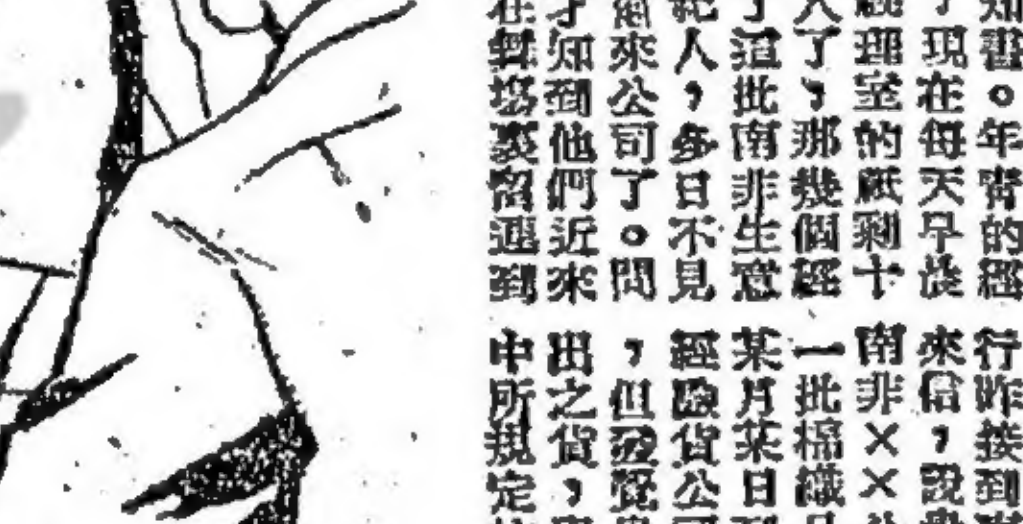 知書。年青的經
了現在每天早晨
經理室的祇剩十
人了,那幾個經
了這批南非生意
紀人,多日不見
個來公司了。問
才知到他們近來
在舞場裏留連到
行昨接到
來信,說
南非××
一批棉織
某月某日
經驗貨公
,但發覺
出之貨,
中所規定